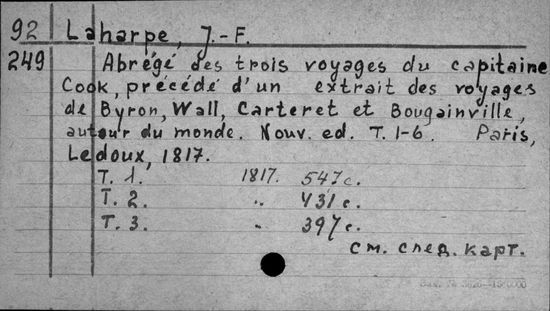 92 Laharpe, J.-F.
249 Abrégé des trois voyages du capitaine
Cook, précédé d'un extrait des voyages
de Byron, Wall, Carteret et Bougainville,
autour du monde. Nouv. ed. T. 1-6. Paris,
Ledoux, 1817.
T. 1. 1817. 547 c.
T. 2. " 431 c.
T. 3. " 397 c.
см. след. карт.